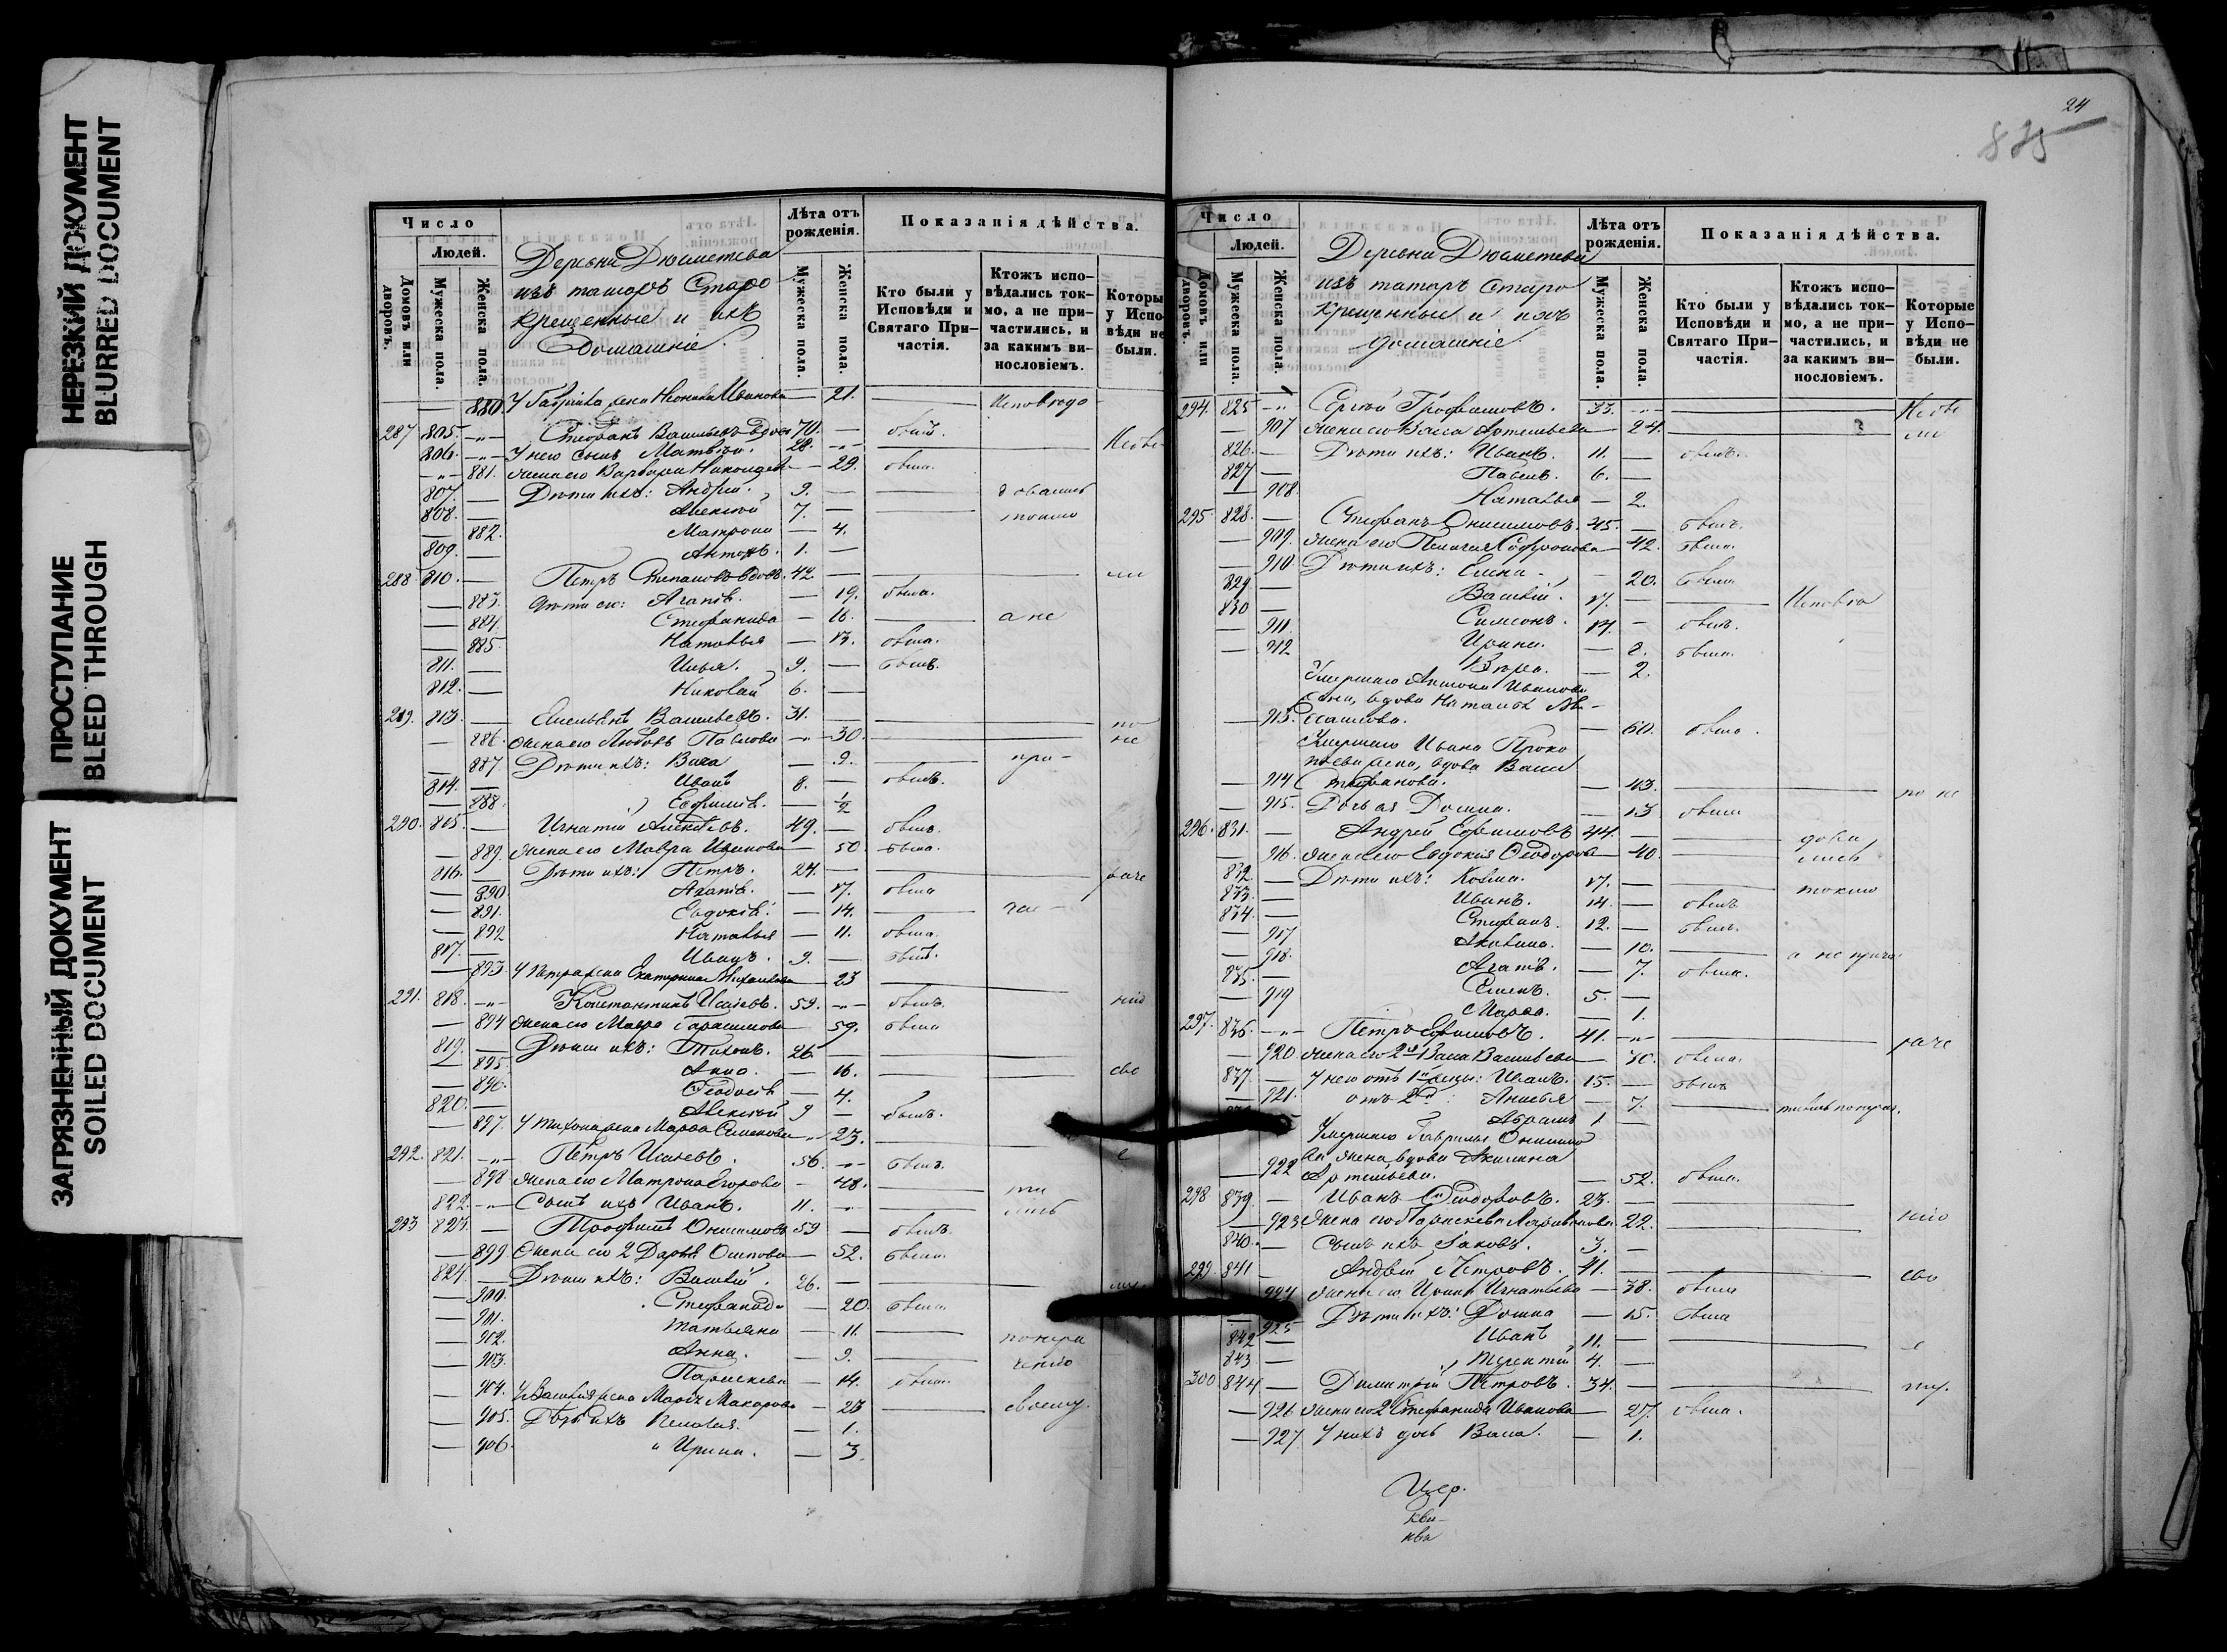 НЕРЕЗКИЙ ДОКУМЕНТ
BLURRED DOCUMENT
ПРОСТУПАНИЕ
BLEED THROUGH
ЗАГРЯЗНЕННЫЙ ДОКУМЕНТ
SOILED DOCUMENT
Число
Людей.
Домовъ или дворовъ.
Мужеска пола.
Женска пола.
Деревни Дюсметева
изъ татаръ Старо
крещенные и ихъ
Домашніе.
Лѣта отъ рожденія.
Мужеска пола.
Женска пола.
Показанія дѣйства.
Кто были у Исповѣди и Святаго Причастія.
Ктожъ исповѣдались токмо, а не причастились, и за какимъ винословіемъ.
Которы у Испо вѣди не были.
880. У Гавріила жена Иванова 21.
287 805. Стефанъ Васильевъ вдовъ 70. былъ.
806. У него сынъ Матвѣй. 28.
881. жена его Варвара 29. была.
807. Дѣти ихъ: Андрей. 9.
808. Алексѣй 7. токмо
882. Матрона 4.
809. Антонъ. 1.
288 810. Петръ Степановъ вдовъ. 42.
883. Дѣти его: Агапія. 19. была.
884. Стефанида 16. а не
885. Наталья 13. была.
811. Илья. 9. былъ.
812. Николай 6.
289. 813. Емельянъ Васильевъ. 31.
886. жена его Любовь Павлова 30. не
887. Дѣти ихъ: Васа 9. при-
814. Иванъ 8. былъ.
888. Ефимія. ½
290. 815. Игнатій Алексѣевъ. 49. былъ.
889. жена его Мавра Иванова 50 была.
816. Дѣти ихъ: Петръ. 24.
890 Агапія. 17. была
891. Евдокія. 14. час-
892 Наталья 11. была.
817. Иванъ. 9. былъ.
893. У Петра жена Екатерина Михайлова 23
291. 818. Константинъ Исаевъ. 59. былъ.
894 жена его Мавра Герасимова 59. была
819. Дѣти ихъ: Тихонъ. 26.
895. Анна. 16. сво
896. Ѳеодосія 4.
820. Алексѣй 9 былъ.
897. У Тихона жена Марѳа Семенова 23.
292. 821. Петръ Исаевъ. 56. былъ.
898 жена его Матрона Егорова 48. ти
822. Сынъ ихъ Иванъ. 11. лись
293 823. Трофимъ Онисимовъ 59 былъ.
899. Жена его 2 Дарья Осипова 52. была.
824. Дѣти ихъ: Василій. 26.
900. Стефанида 20. была.
901. Татьяна 11.
902. Анна. 9.
903. Параскева 14. была.
904. У Василія жена Марѳа Макарова 23 своему.
905. Дѣти ихъ Пелагея. 1.
906. Ирина. 3.
24
835
Число
Людей.
Домовъ или дворовъ.
Мужеска пола.
Женска пола.
Деревни Дюсметева
изъ татаръ Старо
крещенные и ихъ
домашніе.
Лѣта отъ рожденія.
Мужеска пола.
Женска пола.
Показанія дѣйства.
Кто были у Исповѣди и Святаго Причастія.
Ктожъ исповѣдались токмо, а не причастились, и за какимъ винословіемъ.
Которые у Исповѣди не были.
294. 825 Сергѣй Трофимовъ. 33.
907 жена его Васса Артемьева 24.
826. Дѣти ихъ: Иванъ. 11. былъ.
827 Павелъ. 6.
908. Наталья 2.
295. 828. Стефанъ Онисимовъ. 45. былъ.
909. жена его Пелагея Софронова 42. была.
910. Дѣти ихъ: Елена 20. была
829. Василій. 17.
830 Симеонъ. 14. былъ.
911. Ирина. 8. была.
912 Вѣра. 2.
Умершаго Антона Иванова
жена, вдова Наталья
913. 60. была.
Умершаго Ивана Проко
пьева жена, вдова Васса
914 Стефанова. 43. по не
915. Дочь ея Домна. 13 была
296. 831. Андрей Ефимовъ 44.
916. жена его Евдокія Ѳеодорова 40. лись
832. Дѣти ихъ: Козма. 17. токмо
833. Иванъ. 14. былъ
834. Стефанъ. 12. былъ.
917 Акилина. 10. а не прича
918. Агапія. 7. была.
835. Семенъ. 5.
919 Марѳа. 1.
297. 836. Петръ Ефимовъ. 41. раче
920. жена его 2я Васса Васильева 30. была.
837. У него отъ 1й жены: Иванъ. 15. былъ
921. отъ 2й: Анисья 7.
Абрамъ 1
Умершаго Гаврилы Онисимо
ва жена, вдова Акилина
922 Артемьева. 52. была.
298 839. Иванъ Ѳеодоровъ. 23.
923 жена его Параскева 22. нію
840. Сынъ ихъ Іаковъ. 3.
299. 841 Андрей Петровъ. 41. сво
924 жена его Ирина Игнатьева 38. была
925 Дѣти ихъ: Домна 15. была
842 Иванъ 11.
843 Терентій 4.
300 844 Димитрій Петровъ. 34. му.
926 жена его 2 Стефанида Иванова 27. была.
927 У нихъ дочь Васса. 1.